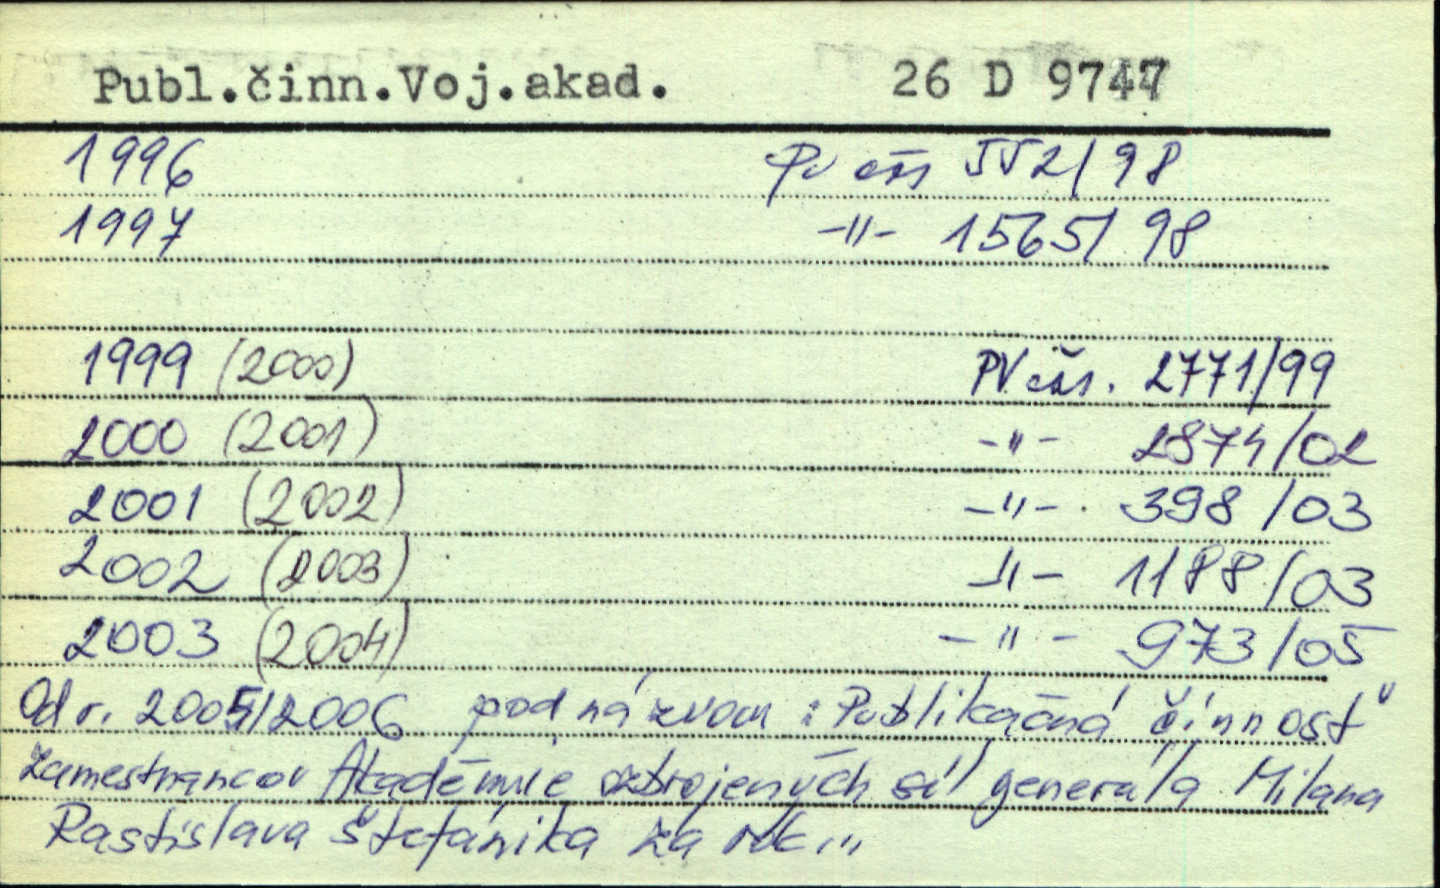 Publ.činn.Voj.akad. 26 D 9747
1996 PV čas 552/98
1997 -"- 1565/98
1999 (2000) PV čas. 2771/99
2000 (2001) -"- 2874/02
2001 (2002) -"- 398/03
2002 (2003) -"- 1188/03
2003 (2004) -"- 973/05
Od r. 2005/2006 pod názvom: Publikačná činnosť
zamestnancov Akadémie ozbrojených síl generála Milana
Rastislava Štefánika za rok ...